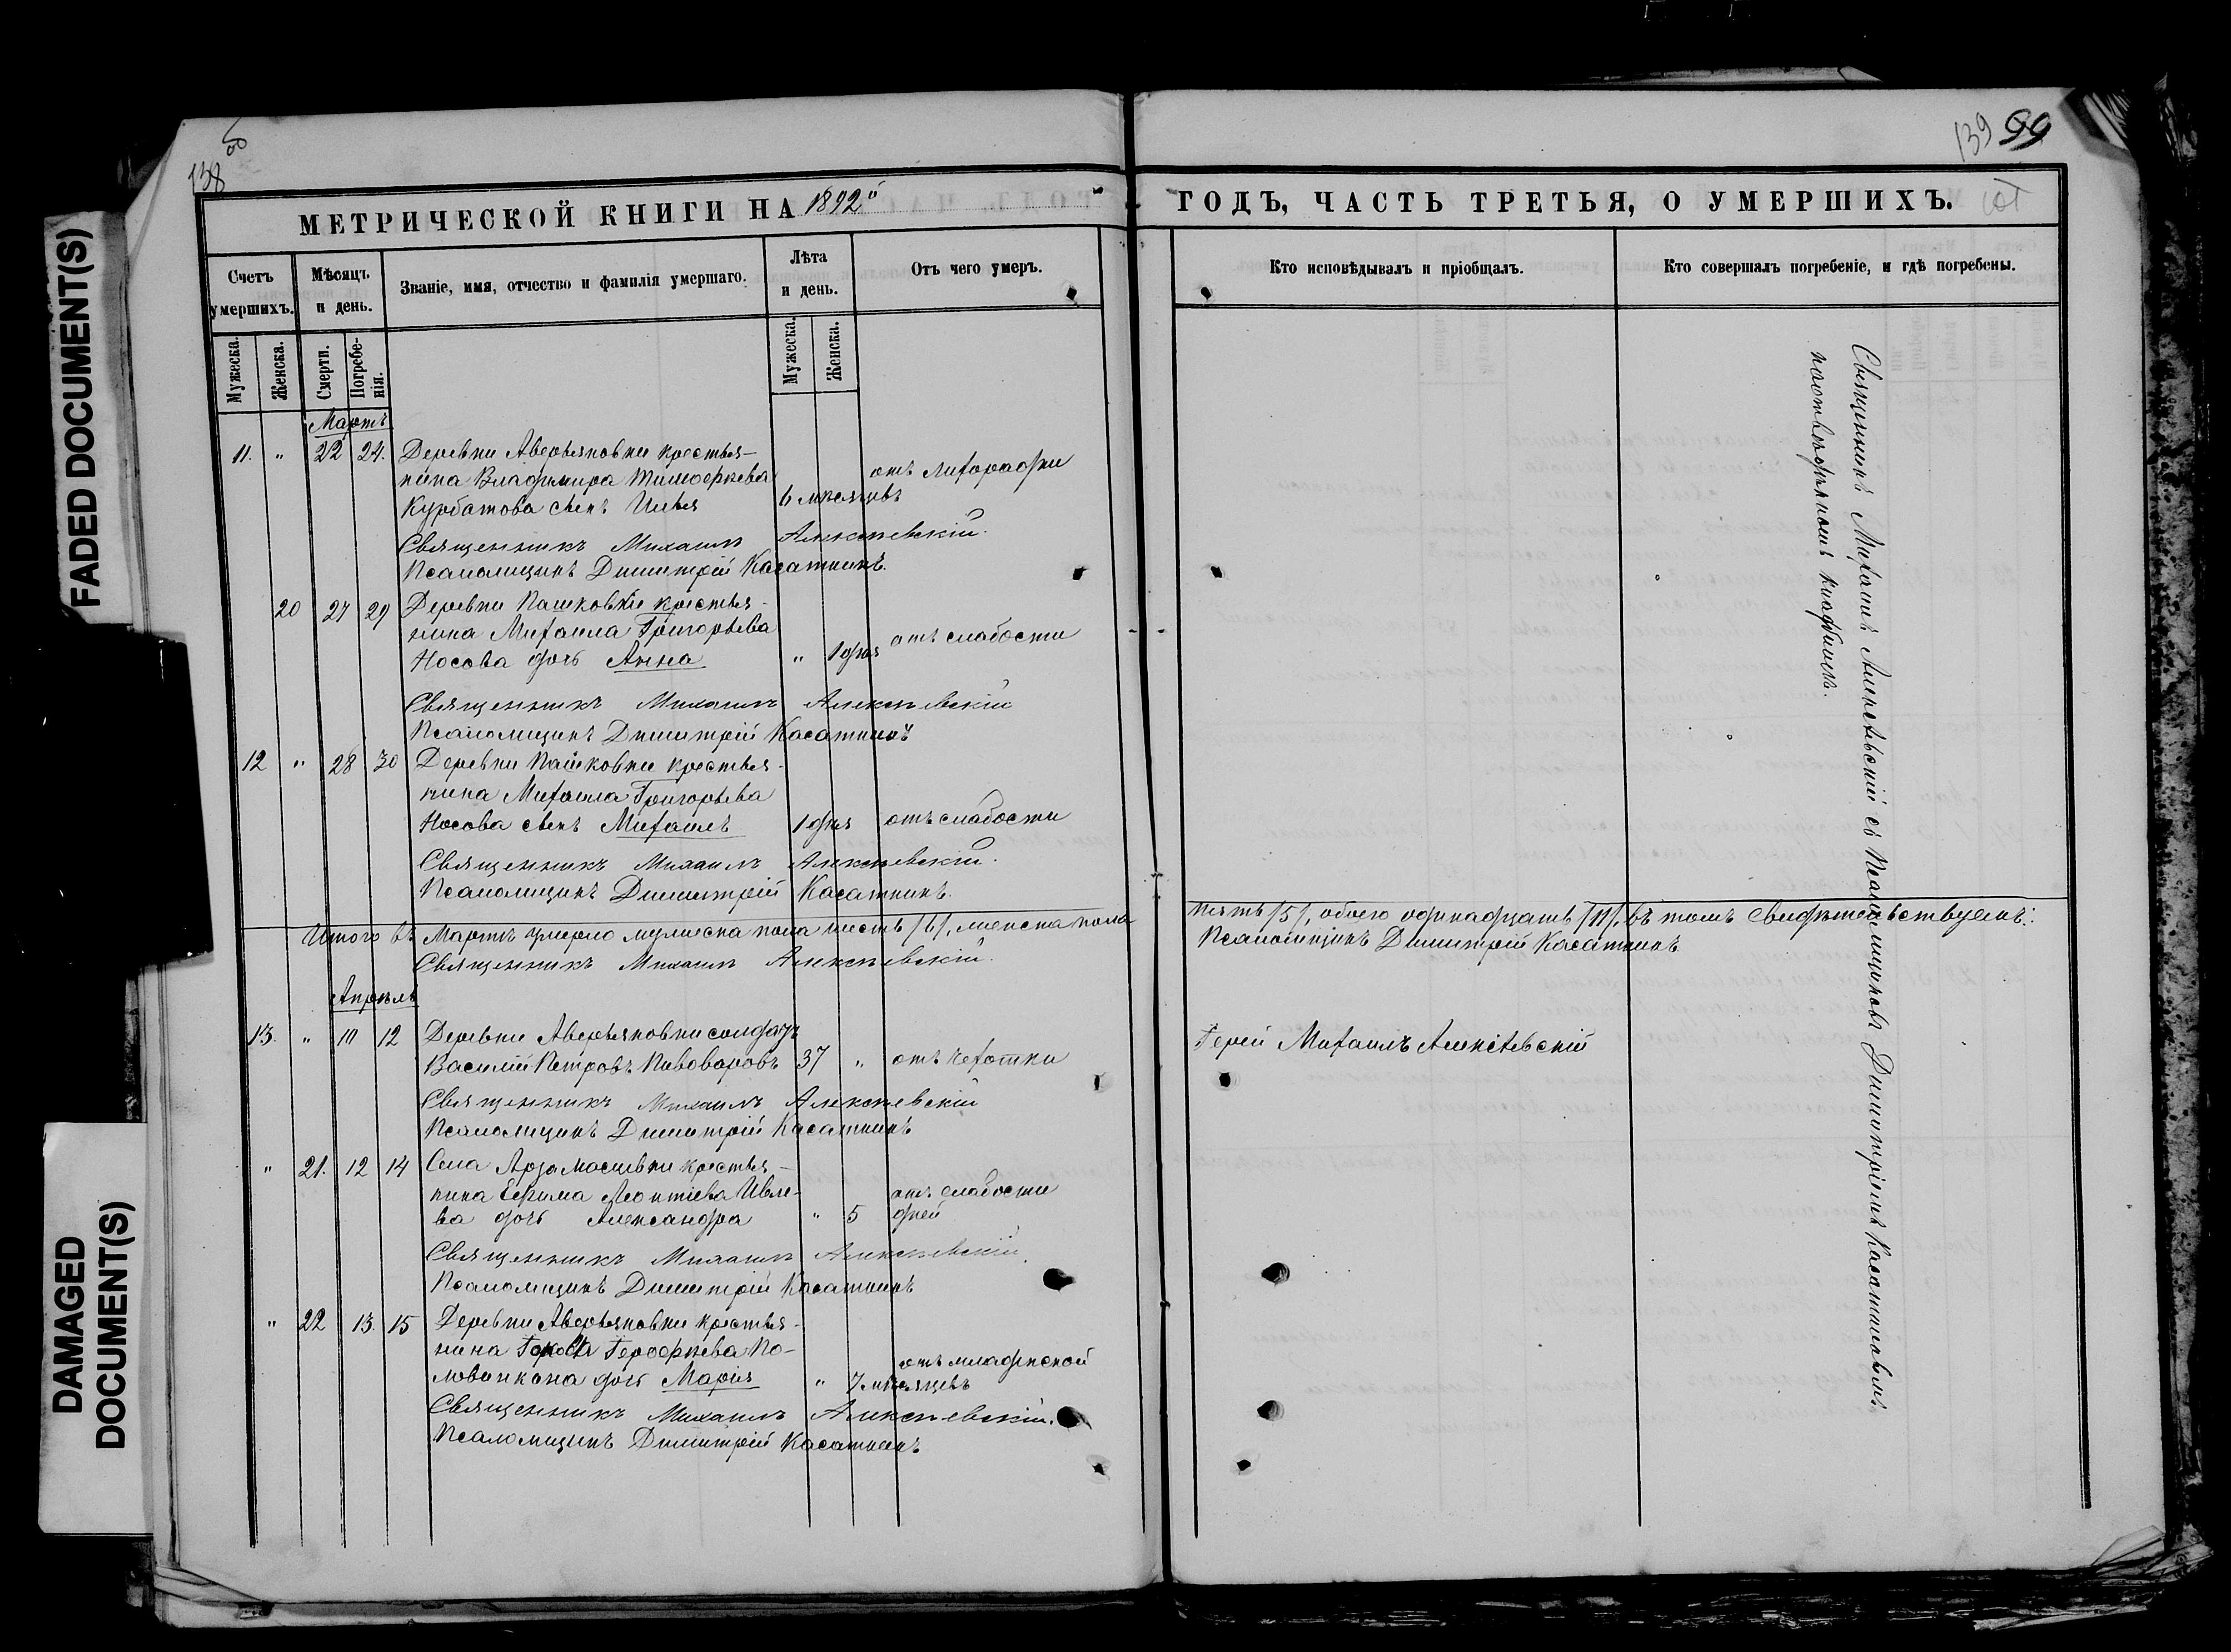 FADED DOCUMENT(S)
DAMAGED
DOCUMENT(S)
138
139 99
МЕТРИЧЕСКОЙ КНИГИ НА 1892й
Счетъ
умершихъ.
Мѣсяцъ
и день.
Званіе, имя, отчество и фамилія умершаго.
Лѣта
и день.
Отъ чего умеръ.
Мужеска.
Женска.
Смерти.
Погребе-
нія.
Мужеска.
Женска.
Мартъ
11. " 22 24. Деревни Аверьяновки крестья-
нина Владимира Тимоѳеева
Курбатова сынъ Илья 6 мѣсяцевъ отъ лихорадки
Священникъ Михаилъ Алексѣевскій.
Псаломщикъ Димитрій Касаткинъ.
20 27 29 Деревни Пашковки крестья-
нина Михаила Григорьева
Носова дочь Анна " 1 дня отъ слабости
Священникъ Михаилъ Алексѣевскій
Псаломщикъ Димитрій Касаткинъ
12 " 28 30 Деревни Пашковки крестья-
нина Михаила Григорьева
Носова сынъ Михаилъ 1 дня отъ слабости
Священникъ Михаилъ Алексѣевскій.
Псаломщикъ Димитрій Касаткинъ.
Итого въ Мартѣ умерло мужеска пола шесть /6/, женска пола
Священникъ Михаилъ Алексѣевскій.
Апрѣль
13. " 10 12 Деревни Аверьяновки солдатъ
Василій Петровъ Пивоваровъ 37 " отъ чахотки
Священникъ Михаилъ Алексѣевскій
Псаломщикъ Димитрій Касаткинъ
" 21. 12 14 Села Арзамасцевки крестья-
нина Ефима Леонтіева Ивле-
ва дочь Александра " 5 дней отъ слабости
Священникъ Михаилъ Алексѣевскій.
Псаломщикъ Димитрій Касаткинъ
" 22 13. 15 Деревни Аверьяновки крестья-
нина По-
ловинкина дочь Марія " 7 мѣсяцевъ отъ младенской
Священникъ Михаилъ Алексѣевскій.
Псаломщикъ Димитрій Касаткинъ
ГОДЪ, ЧАСТЬ ТРЕТЬЯ, О УМЕРШИХЪ.
Кто исповѣдывалъ и пріобщалъ.
Кто совершалъ погребеніе, и гдѣ погребены.
пять /5/, обоего одинадцать /11/, въ томъ свидѣтельствуемъ:
Псаломщикъ Димитрій Касаткинъ
Іерей Михаилъ Алексѣевскій
Священникъ Михаилъ Алексѣевскій съ Псаломщикомъ Димитріемъ Касаткинымъ
на отведенномъ кладбищѣ.